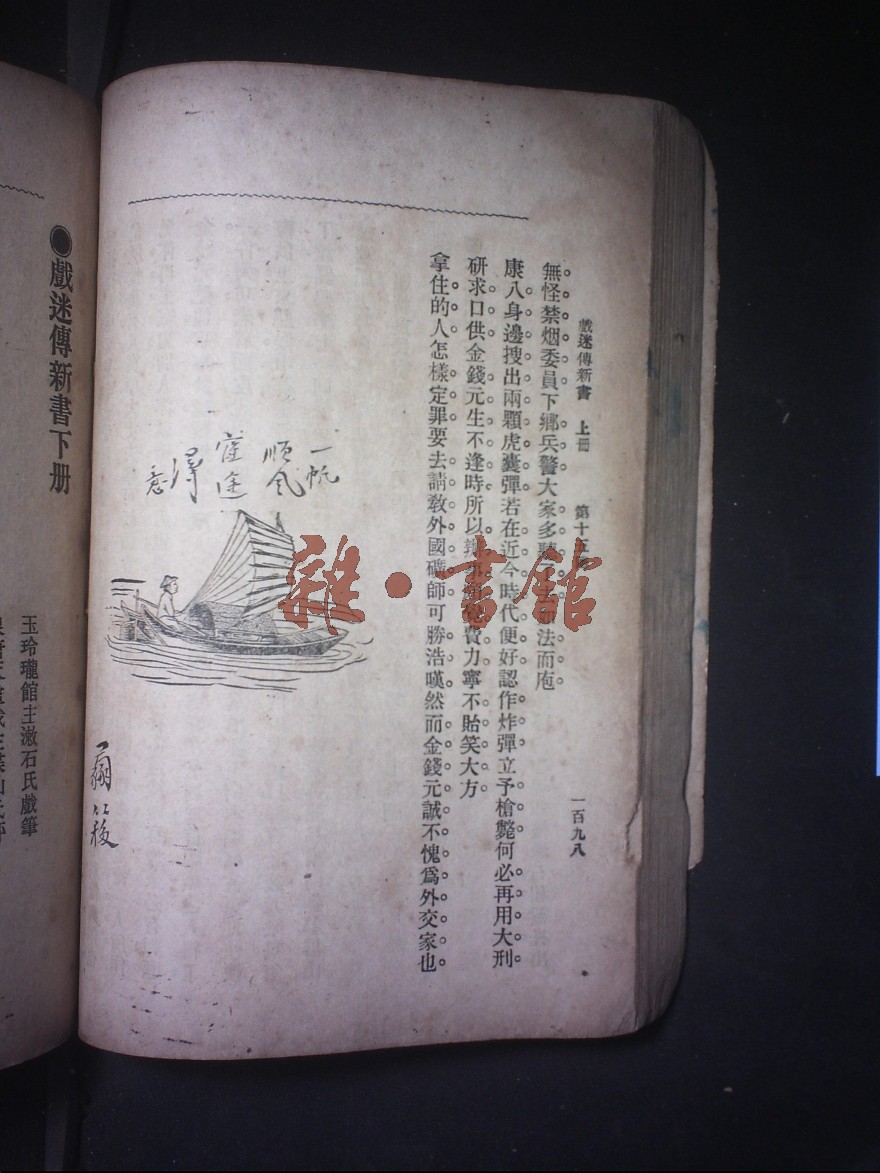 戲迷傳新書　上冊　第十五　一百九八
無怪禁烟委員下鄉兵警大家多　法而庖
康八身邊搜出兩顆虎囊彈若在近今時代便好認作炸彈立予槍斃何必再用大刑
研求口供金錢元生不逢時所以　費力寧不貽笑大方
拿住的人怎樣定罪要去請教外國礦師可勝浩嘆然而金錢元誠不愧爲外交家也
一帆
順風
宦途
得
意
雜·書館
●戲迷傳新書下册
玉玲瓏館主漱石氏戲筆